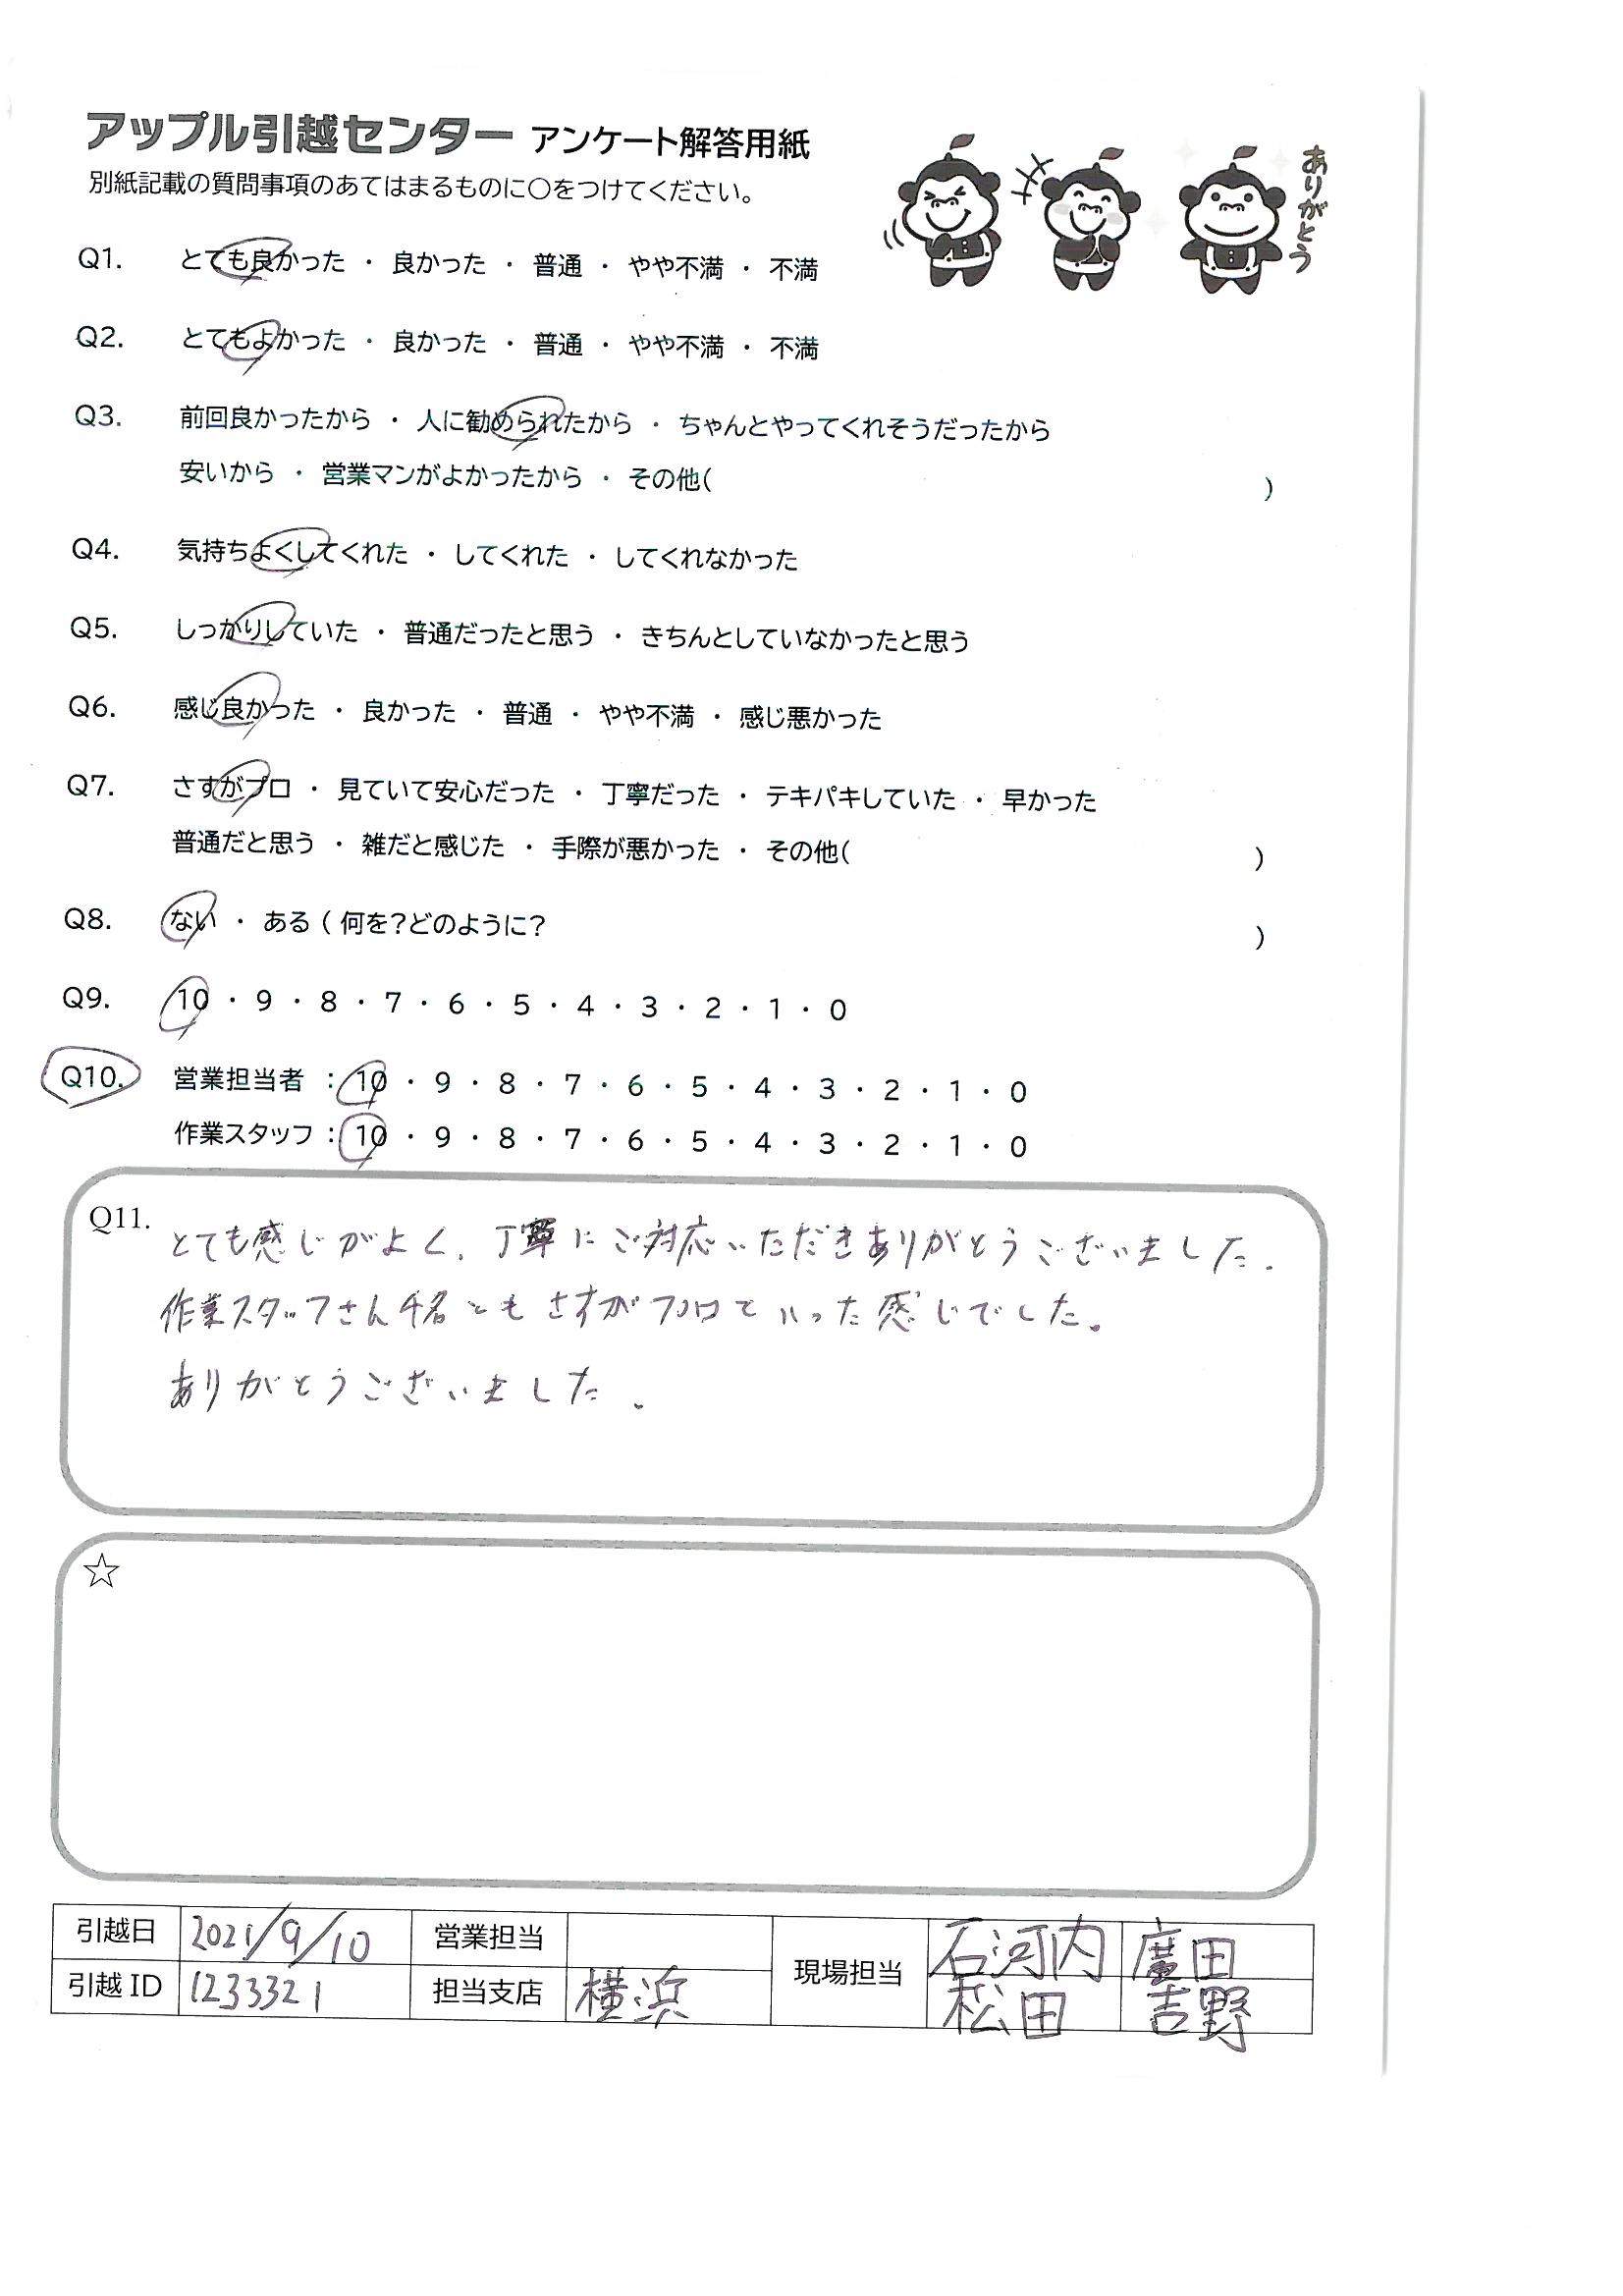 アップル引越センター アンケート解答用紙
別紙記載の質問事項のあてはまるものに〇をつけてください。
ありがとう
Q1. とても良かった ・ 良かった ・ 普通 ・ やや不満 ・ 不満
Q2. とてもよかった ・ 良かった ・ 普通 ・ やや不満 ・ 不満
Q3. 前回良かったから ・ 人に勧められたから ・ ちゃんとやってくれそうだったから
安いから ・ 営業マンがよかったから ・ その他( )
Q4. 気持ちよくしてくれた ・ してくれた ・ してくれなかった
Q5. しっかりしていた ・ 普通だったと思う ・ きちんとしていなかったと思う
Q6. 感じ良かった ・ 良かった ・ 普通 ・ やや不満 ・ 感じ悪かった
Q7. さすがプロ ・ 見ていて安心だった ・ 丁寧だった ・ テキパキしていた ・ 早かった
普通だと思う ・ 雑だと感じた ・ 手際が悪かった ・ その他( )
Q8. ない ・ ある ( 何を?どのように? )
Q9. 10 ・ 9 ・ 8 ・ 7 ・ 6 ・ 5 ・ 4 ・ 3 ・ 2 ・ 1 ・ 0
Q10. 営業担当者 : 10 ・ 9 ・ 8 ・ 7 ・ 6 ・ 5 ・ 4 ・ 3 ・ 2 ・ 1 ・ 0
作業スタッフ : 10 ・ 9 ・ 8 ・ 7 ・ 6 ・ 5 ・ 4 ・ 3 ・ 2 ・ 1 ・ 0
Q11. とても感じがよく、丁寧にご対応いただきありがとうございました。
作業スタッフさん4名ともさすがプロといった感じでした。
ありがとうございました。
☆
引越日 2021/9/10 営業担当 現場担当 石河内 廣田
引越ID 1233321 担当支店 横浜 松田 吉野